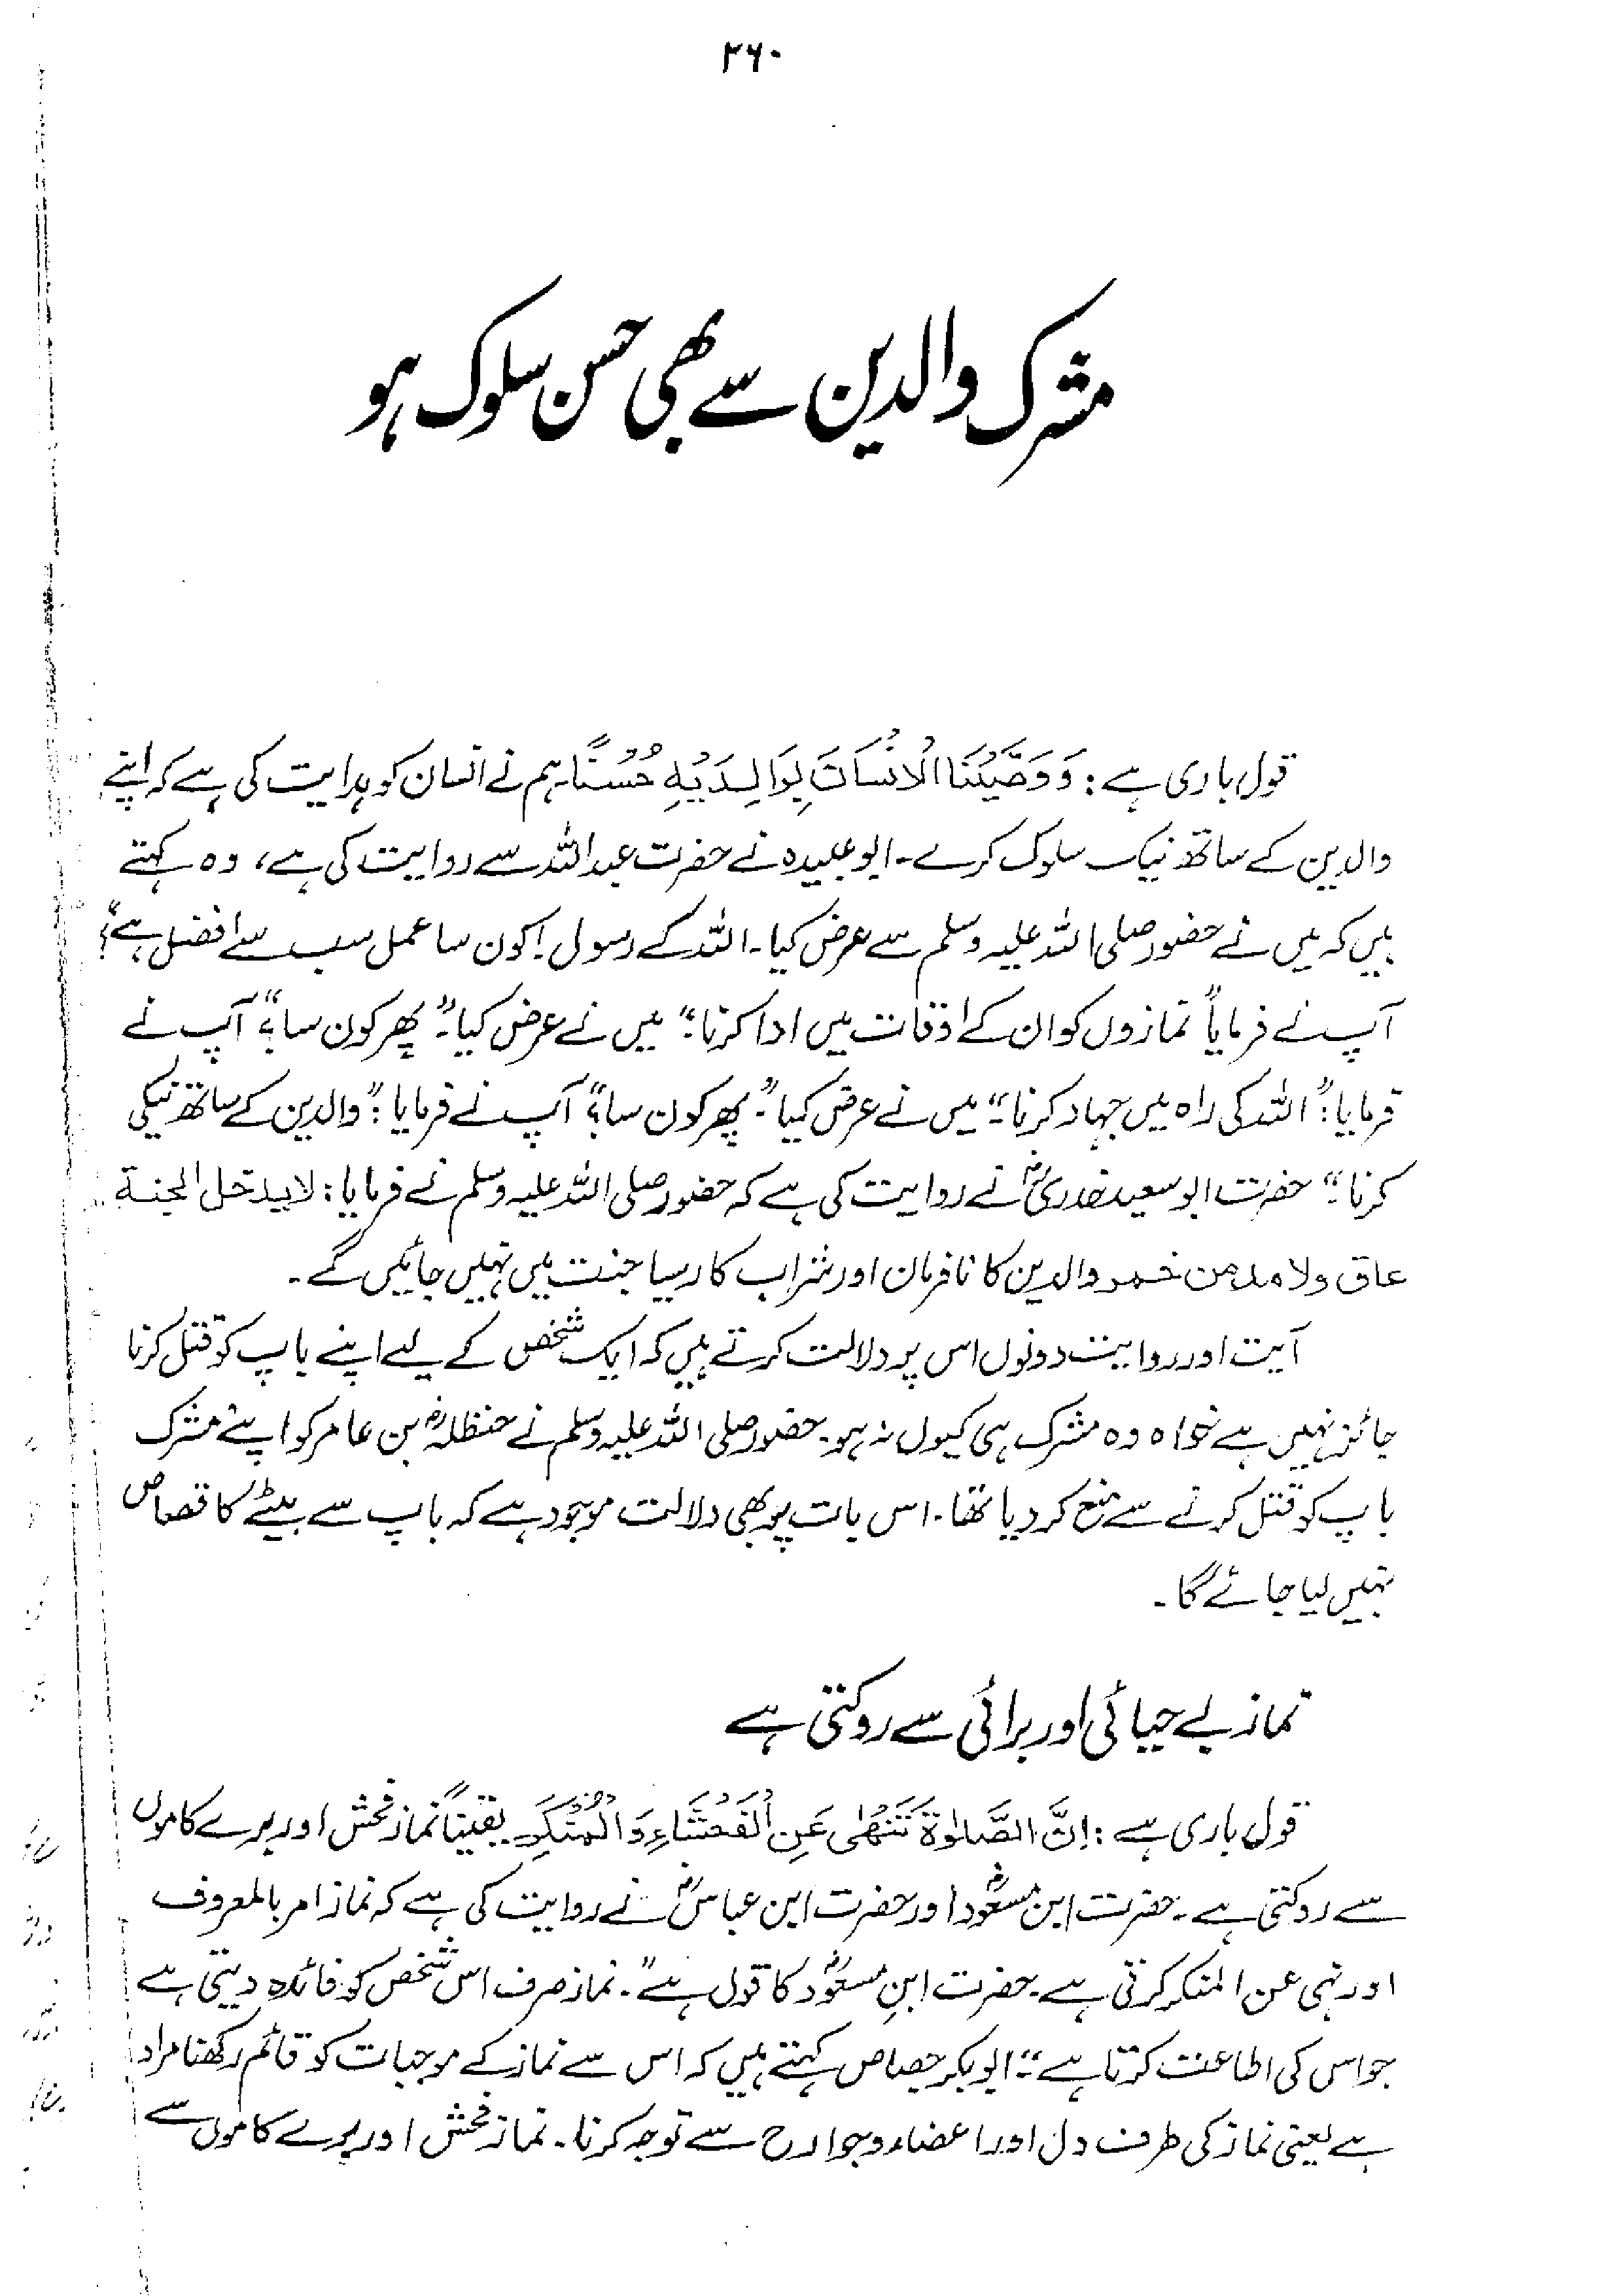 ۲۶۰
مشرک والدین سے بھی حسن سلوک ہو
قول باری ہے : وَوَصَّيْنَا الْاِنْسَانَ بِوَالِدَيْهِ حُسْنًا۔ ہم نے انسان کو ہدایت کی ہے کہ اپنے
والدین کے ساتھ نیک سلوک کرے۔ ابوعبیدہ نے حضرت عبداللہ سے روایت کی ہے، وہ کہتے
ہیں کہ میں نے حضور صلی اللہ علیہ وسلم سے عرض کیا۔ اللہ کے رسول ! کون سا عمل سب سے افضل ہے؟"
آپ نے فرمایا" نمازوں کو ان کے اوقات میں ادا کرنا۔" میں نے عرض کیا۔" پھر کون سا؟" آپ نے
فرمایا:" اللہ کی راہ میں جہاد کرنا۔" میں نے عرض کیا"۔ پھر کون سا؟" آپ نے فرمایا :" والدین کے ساتھ نیکی
کرنا۔" حضرت ابوسعید خدریؓ نے روایت کی ہے کہ حضور صلی اللہ علیہ وسلم نے فرمایا : لا یدخل الجنة
عاق ولا مدمن خمر والدین کا نافرمان اور شراب کا رسیا جنت میں نہیں جائیں گے۔
آیت اور روایت دونوں اس پر دلالت کرتے ہیں کہ ایک شخص کے لیے اپنے باپ کو قتل کرنا
جائز نہیں ہے خواہ وہ مشرک ہی کیوں نہ ہو۔ حضور صلی اللہ علیہ وسلم نے حنظلہؓ بن عامر کو اپنے مشرک
باپ کو قتل کرنے سے منع کر دیا تھا۔ اس بات پر بھی دلالت موجود ہے کہ باپ سے بیٹے کا قصاص
نہیں لیا جائے گا۔
نماز بے حیائی اور برائی سے روکتی ہے
قول باری ہے : اِنَّ الصَّلٰوةَ تَنْهٰى عَنِ الْفَحْشَاءِ وَالْمُنْكَرِ یقیناً نماز فحش اور برے کاموں
سے روکتی ہے۔ حضرت ابن مسعودؓ اور حضرت ابن عباسؓ نے روایت کی ہے کہ نماز امر بالمعروف
اور نہی عن المنکر کرتی ہے۔ حضرت ابنِ مسعودؓ کا قول ہے"۔ نماز صرف اس شخص کو فائدہ دیتی ہے
جو اس کی اطاعت کرتا ہے۔" ابوبکر جصاص کہتے ہیں کہ اس سے نماز کے موجبات کو قائم رکھنا مراد
ہے یعنی نماز کی طرف دل اور اعضاء وجوارح سے توجہ کرنا۔ نماز فحش اور برے کاموں سے